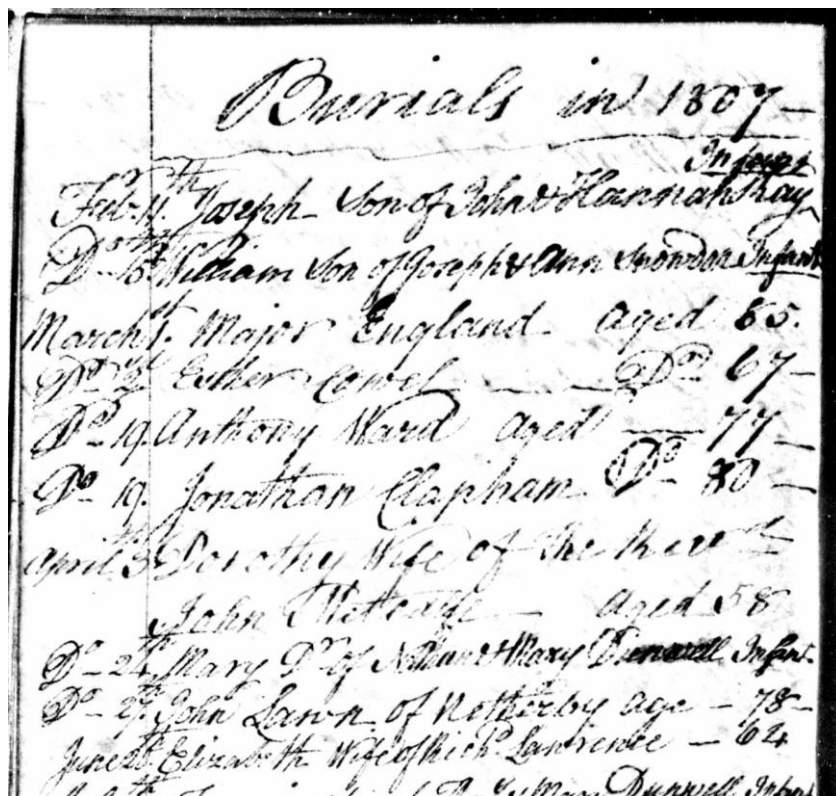 Burials in 1807
Infant
Feb. 11th Joseph Son of John & Hannah Kay
Do 15th William Son of Joseph & Ann Snowdon Infant
March 1st Major England aged 65.
Do Esther Cowel Do 67
Do 19. Anthony Ward aged 77
Do 19. Jonathan Clapham Do 80
April 3 Dorothy Wife of the Revd
John Metcalfe aged 58
Do 24th Mary Dr of & Mary Dunwell Infant
Do 27. John Lawn of Netherby age 78
June Elizabeth Wife of Richd Lawrence 64
Mary Dunwell Infant